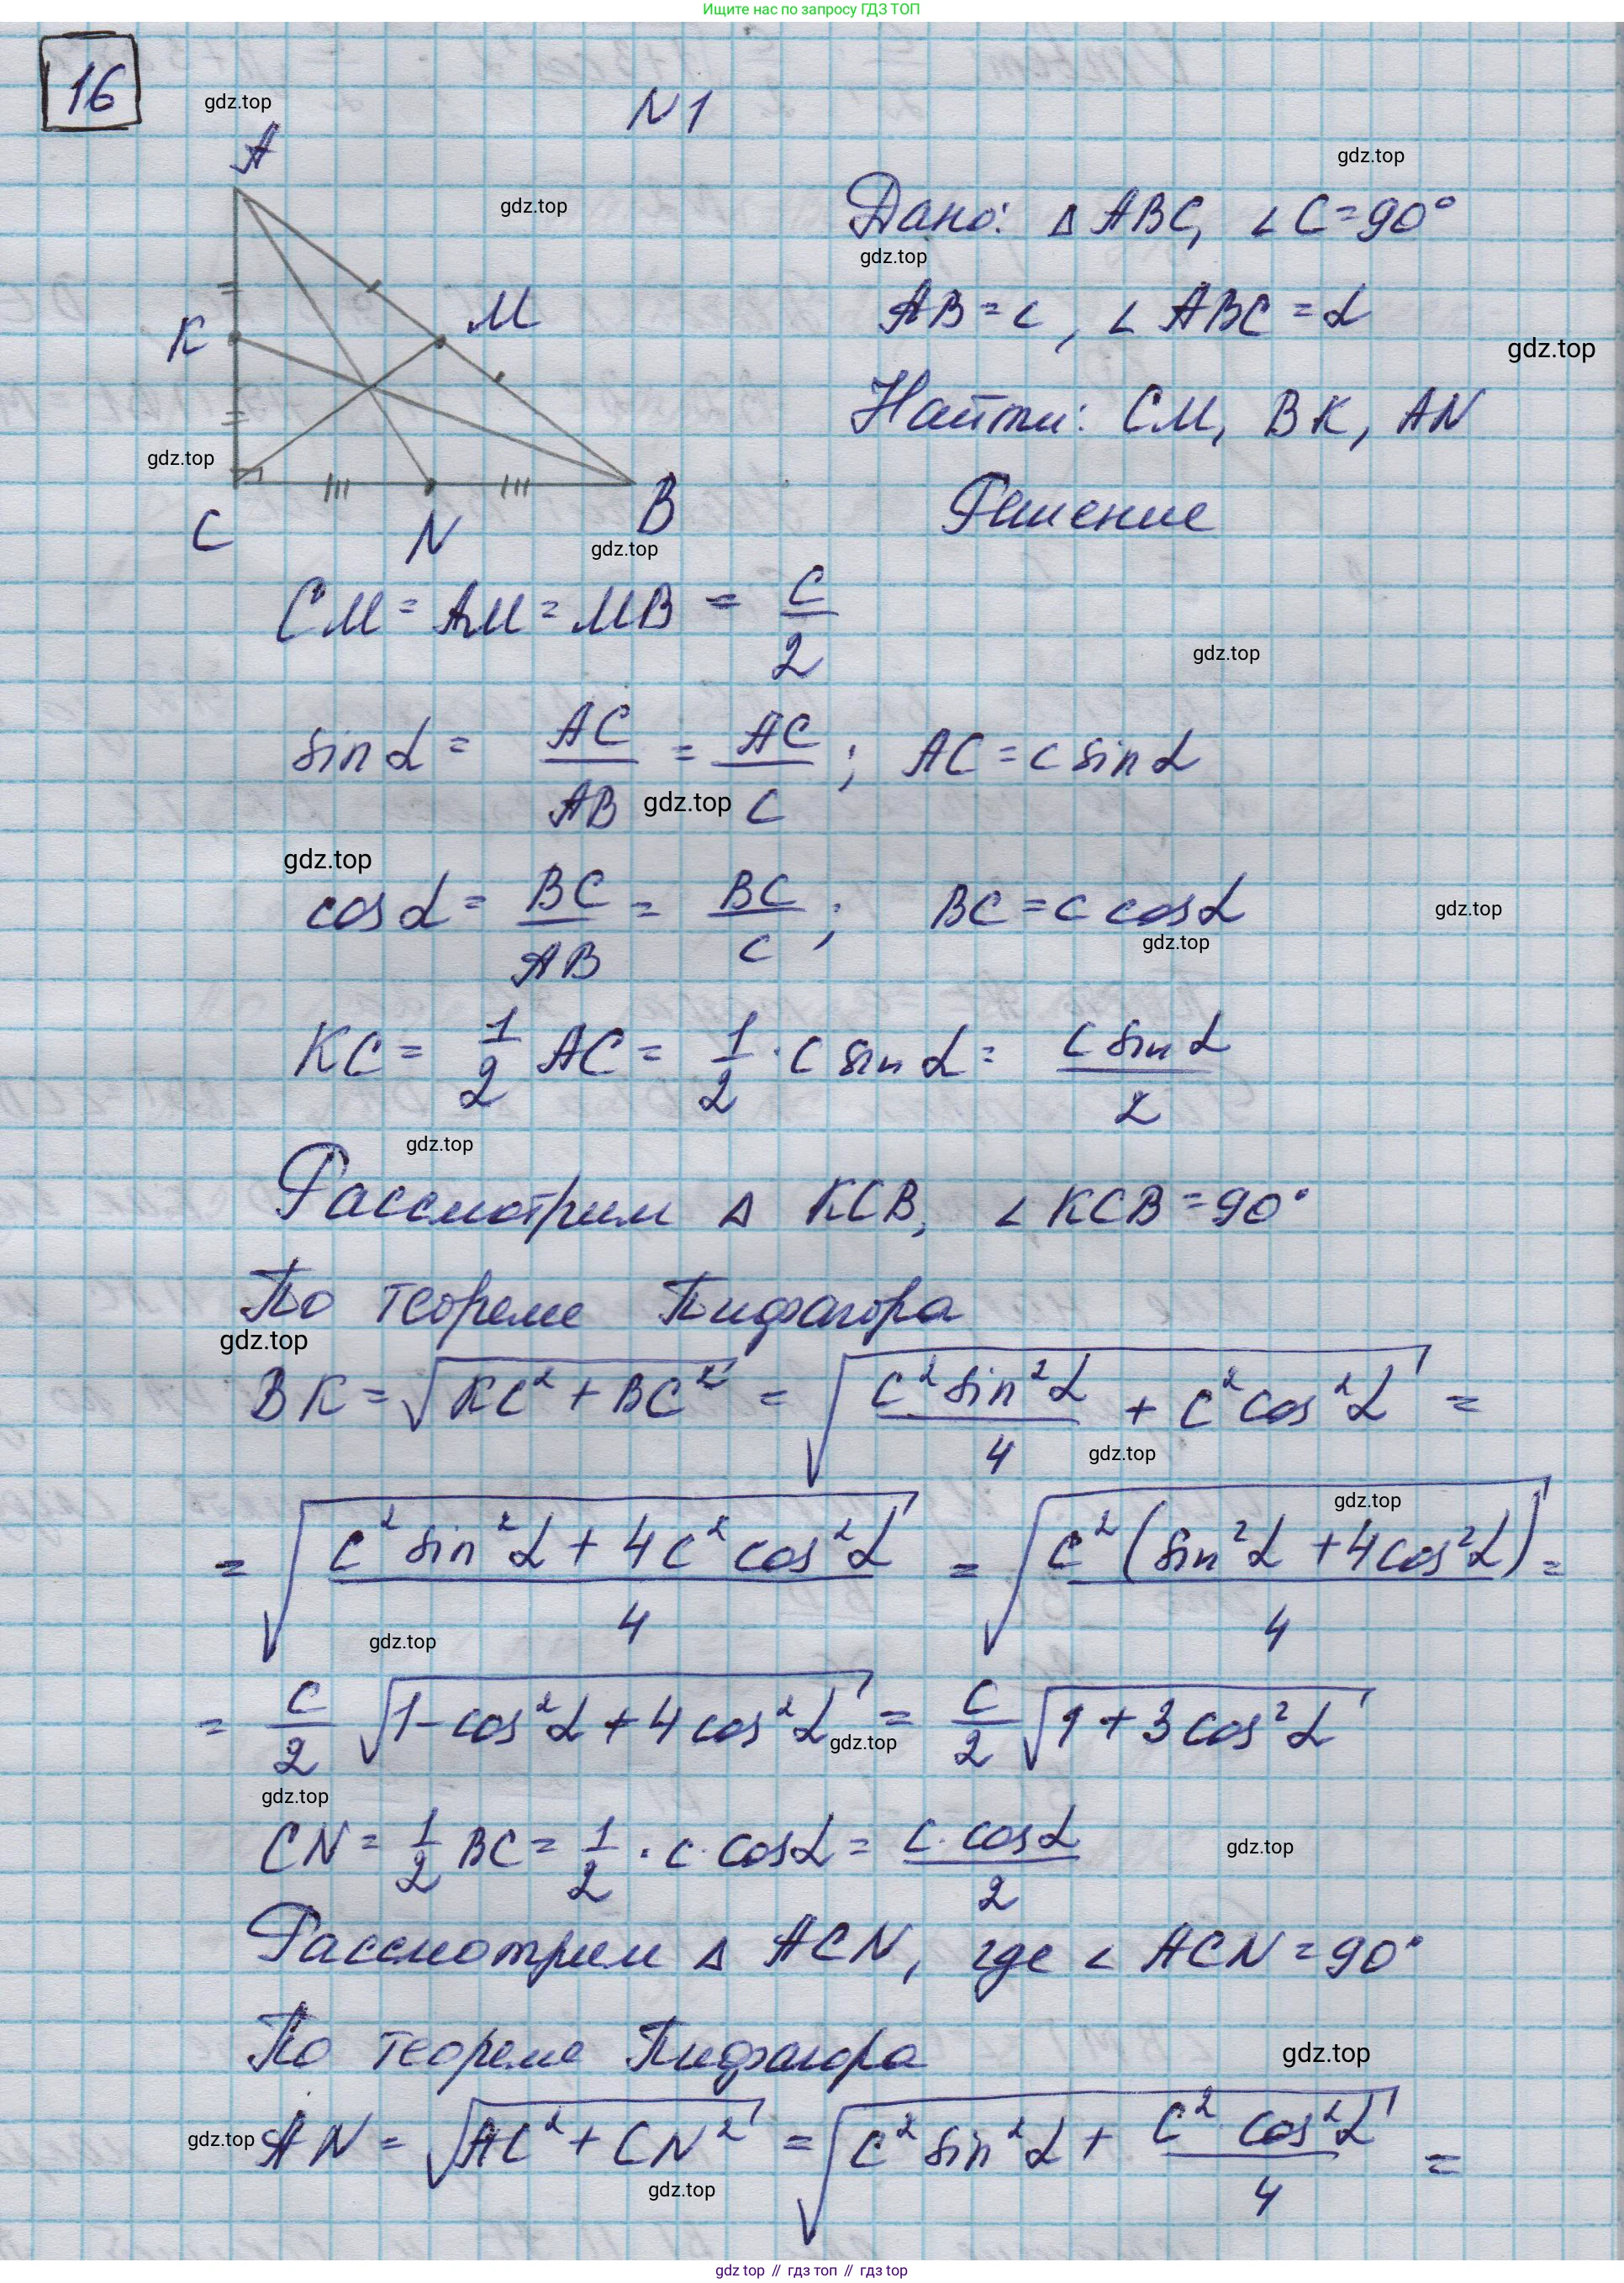 Ищите нас по запросу ГДЗ ТОП
16
gdz.top
N1
A
gdz.top
gdz.top
Дано: Δ ABC, ∠C=90°
gdz.top
K
M
AB=c, ∠ABC=α
gdz.top
Найти: CM, BK, AN
gdz.top
Решение
C N B
gdz.top
CM=AM=MB = c/2
gdz.top
sin α = AC/AB = AC/c; AC=c sin α
gdz.top
gdz.top
cos α = BC/AB = BC/c; BC=c cos α
gdz.top
gdz.top
KC = 1/2 AC = 1/2 · c sin α = (c sin α)/2
gdz.top
Рассмотрим Δ KCB, ∠KCB=90°
По теореме Пифагора
gdz.top
BK = √(KC² + BC²) = √((c² sin² α)/4 + c² cos² α) =
gdz.top
gdz.top
= √((c² sin² α + 4c² cos² α)/4) = √((c² (sin² α + 4cos² α))/4) =
gdz.top
= c/2 √(1-cos² α + 4 cos² α) = c/2 √(1+3 cos² α)
gdz.top
gdz.top
CN = 1/2 BC = 1/2 · c · cos α = (c · cos α)/2
gdz.top
Рассмотрим Δ ACN, где ∠ACN=90°
По теореме Пифагора
gdz.top
gdz.top
AN = √(AC² + CN²) = √(c² sin² α + (c² cos² α)/4) =
gdz.top
gdz top // гдз топ // гдз top